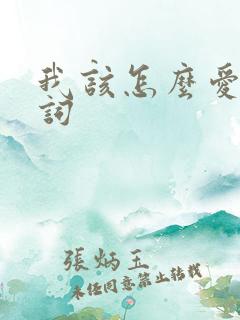 我該怎麼愛
詞
張炳玉
未经同意禁止转载